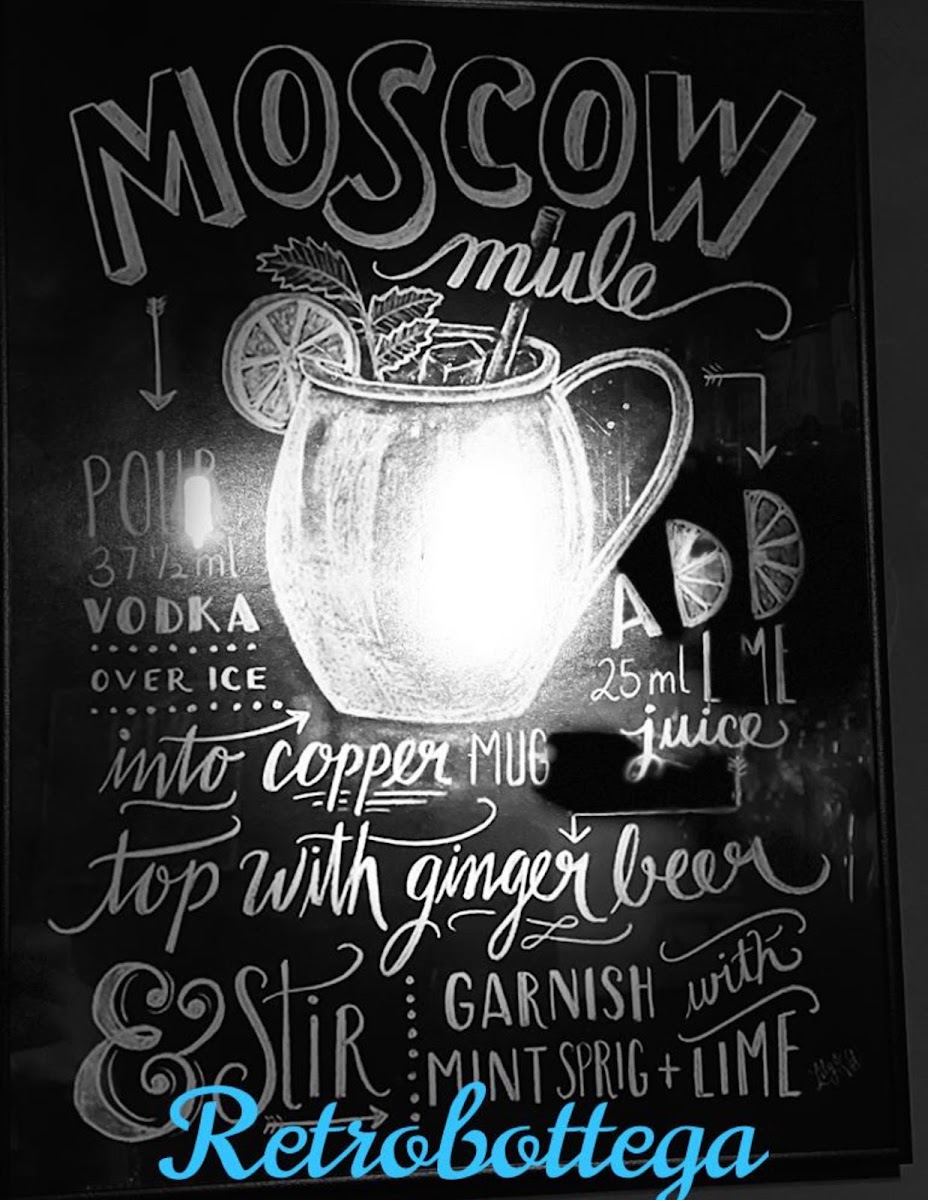 MOSCOW
mule
POUR
37 1/2 ml
VODKA
OVER ICE
into copper MUG
ADD
25 ml LIME
juice
top with ginger beer
& StiR
GARNISH with
MINT SPRIG + LIME
Retrobottega